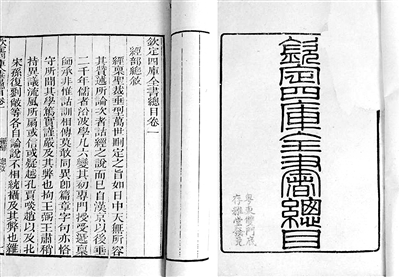 欽定四庫全書總目
粵東雙門底
存雅堂發兌
欽定四庫全書總目卷一
經部總敘
經稟聖裁垂型萬世刪定之旨如日中天無所容
其贊述所論次者詁經之說而已自漢京以後垂
二千年儒者沿波學凡六變其初專門授受遞稟
師承非惟詁訓相傳莫敢同異卽篇章字句亦恪
守所聞其學篤實謹嚴及其弊也拘王弼王肅稍
持異議流風所扇或信或疑越孔賈啖趙以及北
宋孫復劉敞等各自論說不相統攝及其弊也雜